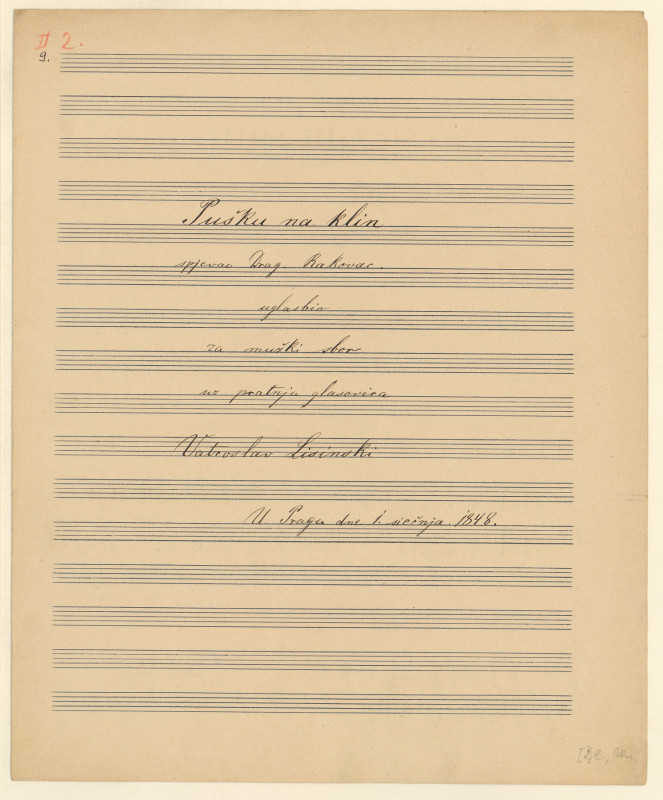 II 2.
9.
Pušku na klin
spjevao Drag. Rakovac.
uglasbio
za mužki sbor
uz pratnju glasovira
Vatroslav Lisinski
U Pragu dne 1. siečnja 1848.